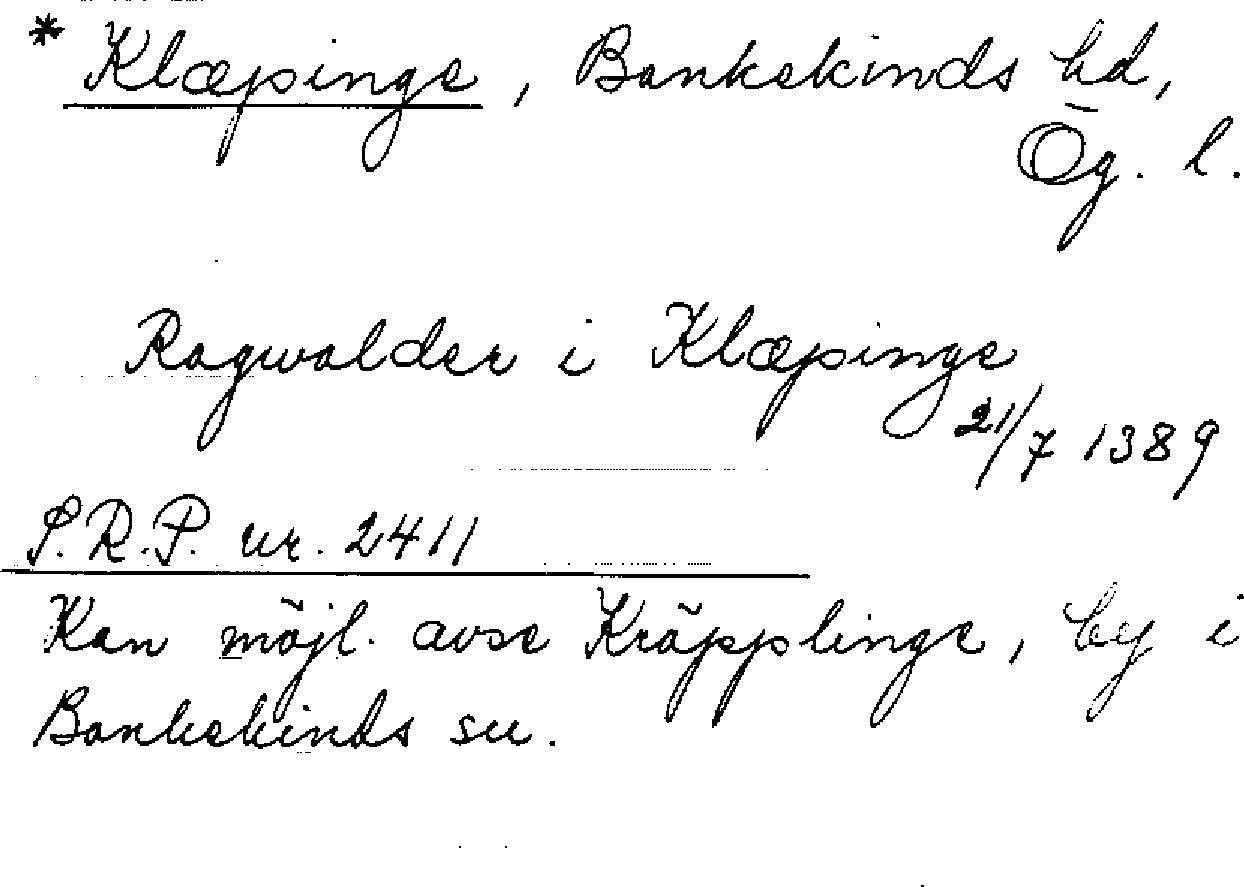 * Klæpinge, Bankekinds hd,
Ög. l.
Ragwalder i Klæpinge
21/7 1389
S.R.P. nr. 2411
Kan möjl. avse Kräpplinge, by i
Bankekinds sn.